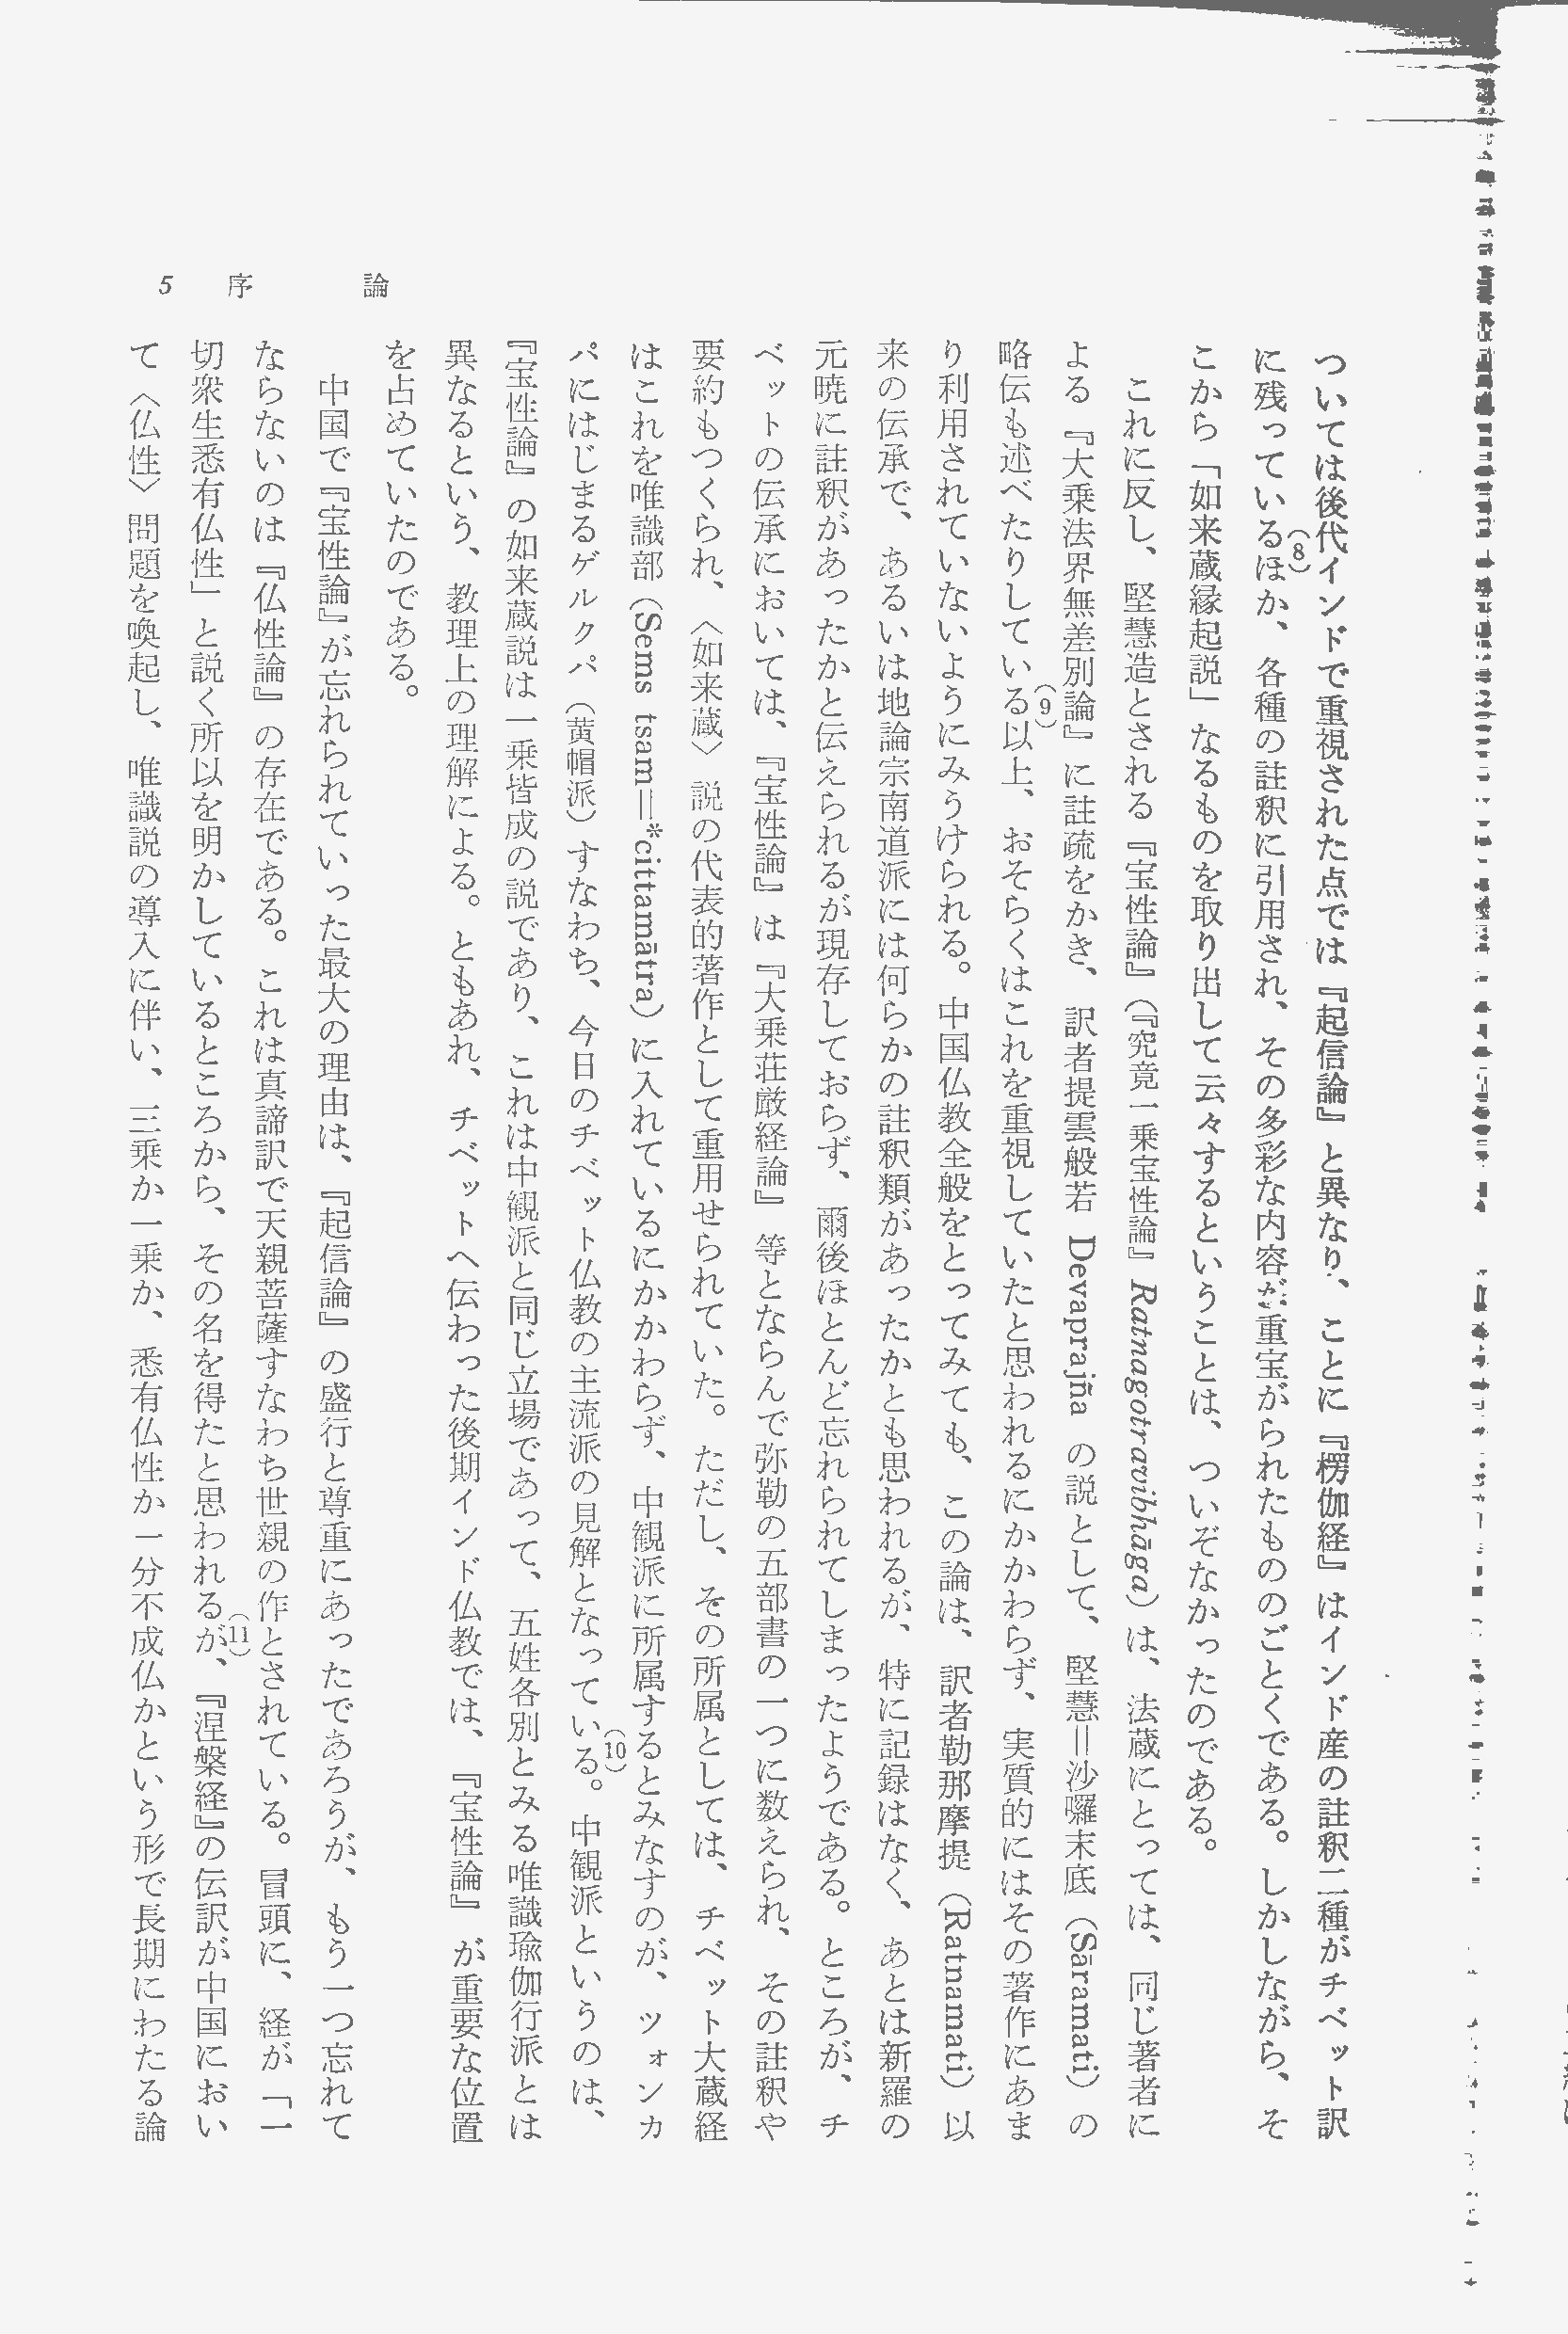 5 序 論
ついては後代インドで重視された点では『起信論』と異なり、ことに『楞伽経』はインド産の註釈二種がチベット訳
に残っている(8)ほか、各種の註釈に引用され、その多彩な内容が重宝がられたもののごとくである。しかしながら、そ
こから「如来蔵縁起説」なるものを取り出して云々するということは、ついぞなかったのである。
これに反し、堅慧造とされる『宝性論』(『究竟一乗宝性論』Ratnagotravibhāga)は、法蔵にとっては、同じ著者に
よる『大乗法界無差別論』に註疏をかき、訳者提雲般若 Devaprajña の説として、堅慧＝沙囉末底(Sāramati)の
略伝も述べたりしている(9)以上、おそらくはこれを重視していたと思われるにかかわらず、実質的にはその著作にあま
り利用されていないようにみうけられる。中国仏教全般をとってみても、この論は、訳者勒那摩提(Ratnamati)以
来の伝承で、あるいは地論宗南道派には何らかの註釈類があったかとも思われるが、特に記録はなく、あとは新羅の
元暁に註釈があったかと伝えられるが現存しておらず、爾後ほとんど忘れられてしまったようである。ところが、チ
ベットの伝承においては、『宝性論』は『大乗荘厳経論』等とならんで弥勒の五部書の一つに数えられ、その註釈や
要約もつくられ、〈如来蔵〉説の代表的著作として重用せられていた。ただし、その所属としては、チベット大蔵経
はこれを唯識部(Sems tsam＝*cittamātra)に入れているにかかわらず、中観派に所属するとみなすのが、ツォンカ
パにはじまるゲルクパ(黄帽派)すなわち、今日のチベット仏教の主流派の見解となっている(10)。中観派というのは、
『宝性論』の如来蔵説は一乗皆成の説であり、これは中観派と同じ立場であって、五姓各別とみる唯識瑜伽行派とは
異なるという、教理上の理解による。ともあれ、チベットへ伝わった後期インド仏教では、『宝性論』が重要な位置
を占めていたのである。
中国で『宝性論』が忘れられていった最大の理由は、『起信論』の盛行と尊重にあったであろうが、もう一つ忘れて
ならないのは『仏性論』の存在である。これは真諦訳で天親菩薩すなわち世親の作とされている。冒頭に、経が「一
切衆生悉有仏性」と説く所以を明かしているところから、その名を得たと思われる(11)が、『涅槃経』の伝訳が中国におい
て〈仏性〉問題を喚起し、唯識説の導入に伴い、三乗か一乗か、悉有仏性か一分不成仏かという形で長期にわたる論